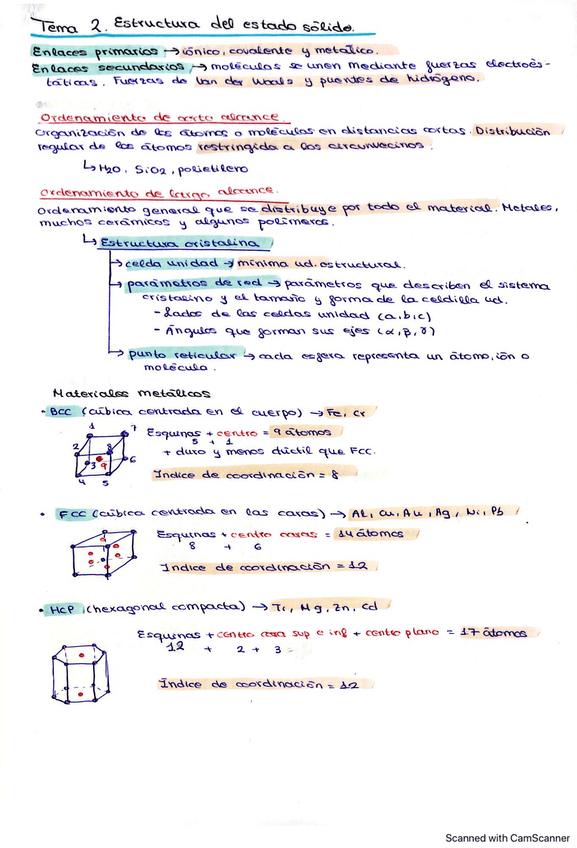 Tema 2. Estructura del estado sólido.
Enlaces primarios → iónico, covalente y metálico.
Enlaces secundarios → moléculas se unen mediante fuerzas electros-
táticas. Fuerzas de Van der Waals y puentes de hidrógeno.
Ordenamiento de corto alcance.
Organización de los átomos o moléculas en distancias cortas. Distribución
regular de los átomos restringida a los circunvecinos.
↳ H2O, SiO2, polietileno
Ordenamiento de largo alcance.
Ordenamiento general que se distribuye por todo el material. Metales,
muchos cerámicos y algunos polímeros.
↳ Estructura cristalina
→ celda unidad → mínima ud. estructural.
→ parámetros de red → parámetros que describen el sistema
cristalino y el tamaño y forma de la celdilla ud.
- Lados de las celdas unidad (a,b,c)
- Ángulos que forman sus ejes (α,β,γ)
→ punto reticular → cada esfera representa un átomo, ión o
molécula.
Materiales metálicos
• BCC (cúbica centrada en el cuerpo) → Fe, Cr
1 7
2 8
3 9 6
4 5
Esquinas + centro = 9 átomos
5 + 1
+ duro y menos dúctil que FCC.
Índice de coordinación = 8
• FCC (cúbica centrada en las caras) → Al, Cu, Au, Ag, Ni, Pb
Esquinas + centro caras = 14 átomos
8 + 6
Índice de coordinación = 12
• HCP (hexagonal compacta) → Ti, Mg, Zn, Cd
Esquinas + centro cara sup e inf + centro plano = 17 átomos
12 + 2 + 3
Índice de coordinación = 12
Scanned with CamScanner